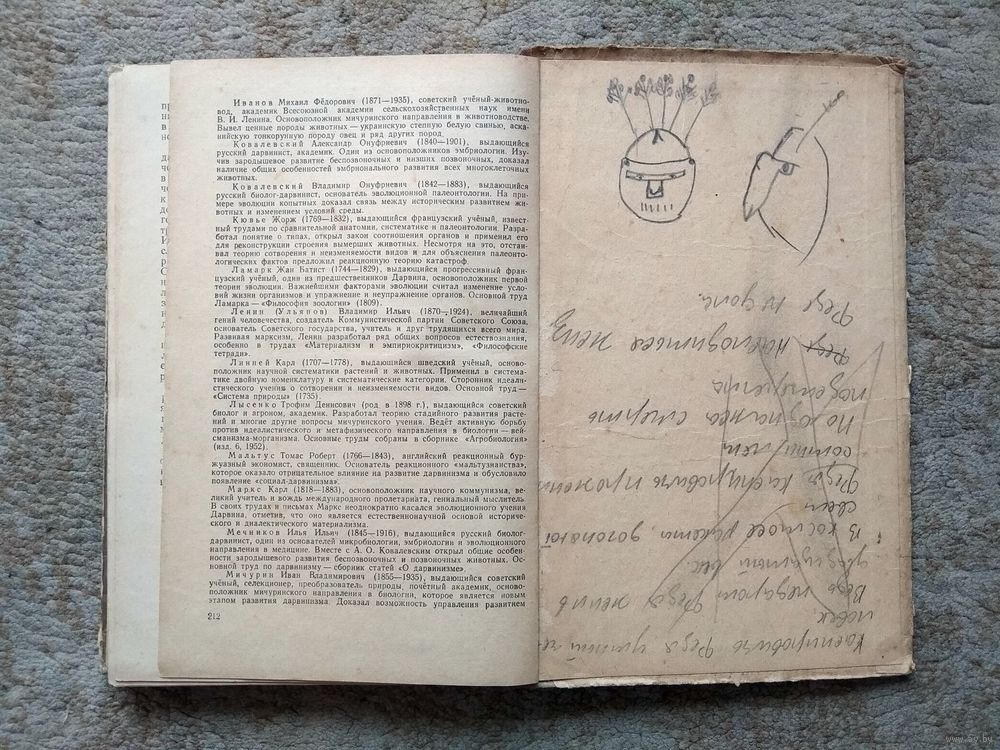 Иванов Михаил Фёдорович (1871—1935), советский учёный-животно-
вод, академик Всесоюзной академии сельскохозяйственных наук имени
В. И. Ленина. Основоположник мичуринского направления в животноводстве.
Вывел ценные породы животных — украинскую степную белую свинью, аска-
нийскую тонкорунную породу овец и ряд других пород.
Ковалевский Александр Онуфриевич (1840—1901), выдающийся
русский дарвинист, академик. Один из основоположников эмбриологии. Изу-
чив зародышевое развитие беспозвоночных и низших позвоночных, доказал
наличие общих особенностей эмбрионального развития всех многоклеточных
животных.
Ковалевский Владимир Онуфриевич (1842—1883), выдающийся
русский биолог-дарвинист, основатель эволюционной палеонтологии. На при-
мере эволюции копытных доказал связь между историческим развитием жи-
вотных и изменением условий среды.
Кювье Жорж (1769—1832), выдающийся французский учёный, извест-
ный трудами по сравнительной анатомии, систематике и палеонтологии. Разра-
ботал понятие о типах, открыл закон соотношения органов и применил его
для реконструкции строения вымерших животных. Несмотря на это, отстаи-
вал теорию сотворения и неизменяемости видов и для объяснения палеонто-
логических фактов предложил реакционную теорию катастроф.
Ламарк Жан Батист (1744—1829), выдающийся прогрессивный фран-
цузский учёный, один из предшественников Дарвина, основоположник первой
теории эволюции. Важнейшими факторами эволюции считал изменение усло-
вий жизни организмов и упражнение и неупражнение органов. Основной труд
Ламарка — «Философия зоологии» (1809).
Ленин (Ульянов) Владимир Ильич (1870—1924), величайший
гений человечества, создатель Коммунистической партии Советского Союза,
основатель Советского государства, учитель и друг трудящихся всего мира.
Развивая марксизм, Ленин разработал ряд общих вопросов естествознания,
особенно в трудах «Материализм и эмпириокритицизм», «Философские
тетради».
Линней Карл (1707—1778), выдающийся шведский учёный, осново-
положник научной систематики растений и животных. Применил в система-
тике двойную номенклатуру и систематические категории. Сторонник идеали-
стического учения о сотворении и неизменяемости видов. Основной труд —
«Система природы» (1735).
Лысенко Трофим Денисович (род. в 1898 г.), выдающийся советский
биолог и агроном, академик. Разработал теорию стадийного развития расте-
ний и многие другие вопросы мичуринского учения. Ведёт активную борьбу
против идеалистического и метафизического направления в биологии — вей-
сманизма-морганизма. Основные труды собраны в сборнике «Агробиология»
(изд. 6, 1952).
Мальтус Томас Роберт (1766—1843), английский реакционный бур-
жуазный экономист, священник. Основатель реакционного «мальтузианства»,
которое оказало отрицательное влияние на развитие дарвинизма и обусловило
появление «социал-дарвинизма».
Маркс Карл (1818—1883), основоположник научного коммунизма, ве-
ликий учитель и вождь международного пролетариата, гениальный мыслитель.
В своих трудах и письмах Маркс неоднократно касался эволюционного учения
Дарвина, отметив, что оно является естественнонаучной основой историче-
ского и диалектического материализма.
Мечников Илья Ильич (1845—1916), выдающийся русский биолог-
дарвинист, один из основателей микробиологии, эмбриологии и эволюционного
направления в медицине. Вместе с А. О. Ковалевским открыл общие особенно-
сти зародышевого развития беспозвоночных и позвоночных животных. Ос-
новной труд по дарвинизму — сборник статей «О дарвинизме».
Мичурин Иван Владимирович (1855—1935), выдающийся советский
учёный, селекционер, преобразователь природы, почётный академик, осново-
положник мичуринского направления в биологии, которое является новым
этапом развития дарвинизма. Доказал возможность управления развитием
212
Федя умный че-
ловек
Ведь недаром Федя жить
двадцатый век
В космосе ракета догонять
свет
Федя
По
Федя